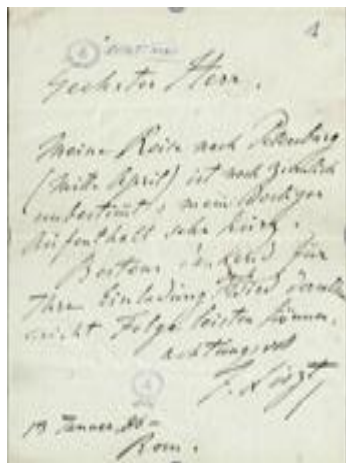 4
Geehrter Herr.
Meine Reise nach Petersburg
(Mitte April) ist noch ziemlich
unbestimt, mein dortiger
Aufenthalt sehr kurz.
Bestens dankend für
Ihre Einladung, Folge leisten können,
achtungsvoll
F. Liszt
Januar, 86 –
Rom.